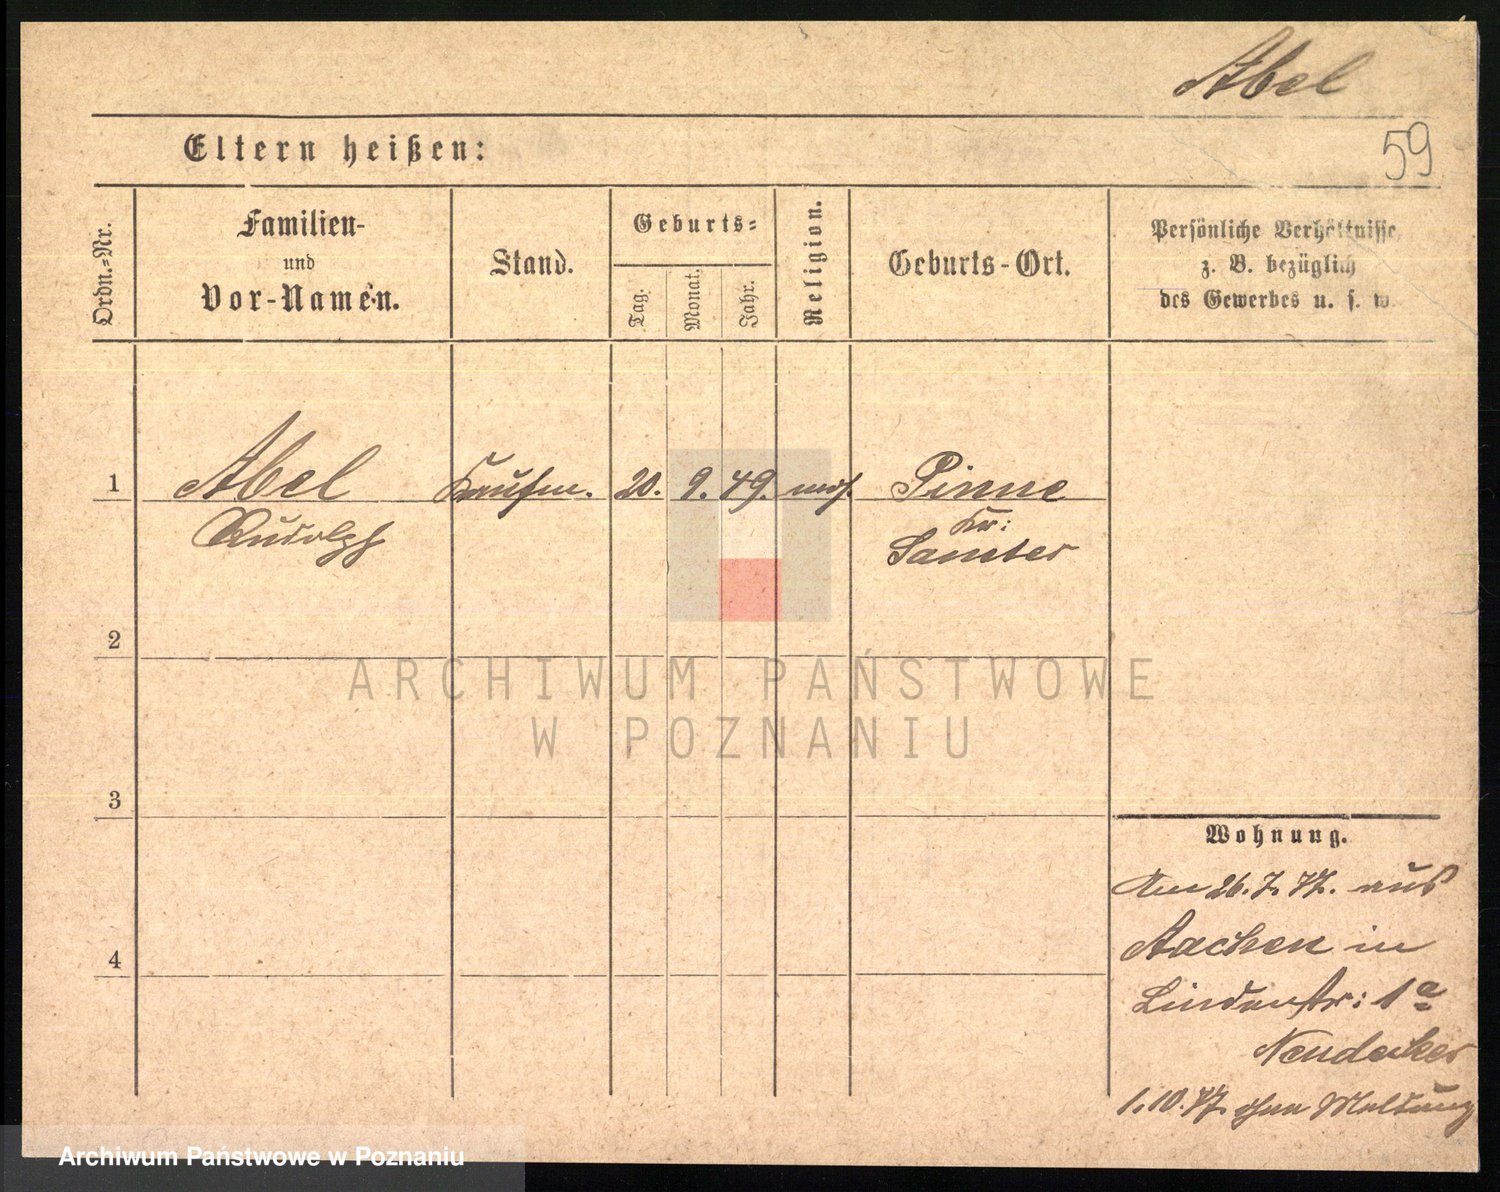 Abel
59
Eltern heißen:
Ordn.-Nr.
Familien-
und
Vor-Namen.
Stand.
Geburts-
Tag.
Monat.
Jahr.
Religion.
Geburts-Ort.
Persönliche Verhältnisse
z. B. bezüglich
des Gewerbes u. s. w.
1
Abel
Rudolph
Kaufm.
20.
9.
49.
mos.
Pinne
Kr:
Samter
2
3
4
ARCHIWUM PAŃSTWOWE
W POZNANIU
Wohnung.
Am 26.7.77. aus
Aachen in
Lindenstr: 1a
Neudecker
1.10.77. ohne Meldung
Archiwum Państwowe w Poznaniu